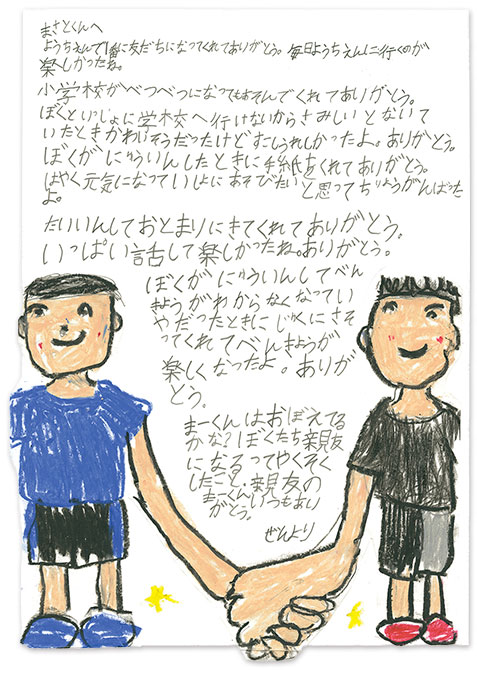 まさとくんへ
ようちえんで1番に友だちになってくれてありがとう。毎日ようちえんに行くのが
楽しかったね。
小学校がべつべつになってもあそんでくれてありがとう。
ぼくといっしょに学校へ行けないからさみしいとないて
いたときかわいそうだったけどすこしうれしかったよ。ありがとう。
ぼくがにゅういんしたときに手紙をくれてありがとう。
はやく元気になっていっしょにあそびたいと思ってちりょうがんばった
よ。
たいいんしておとまりにきてくれてありがとう。
いっぱい話して楽しかったね。ありがとう。
ぼくがにゅういんしてべん
きょうがわからなくなってい
やだったときにじゅくにさそ
ってくれてべんきょうが
楽しくなったよ。ありが
とう。
まーくんはおぼえてる
かな?ぼくたち親友
になるってやくそく
したこと。親友の
まーくんいつもあり
がとう。
ぜんより